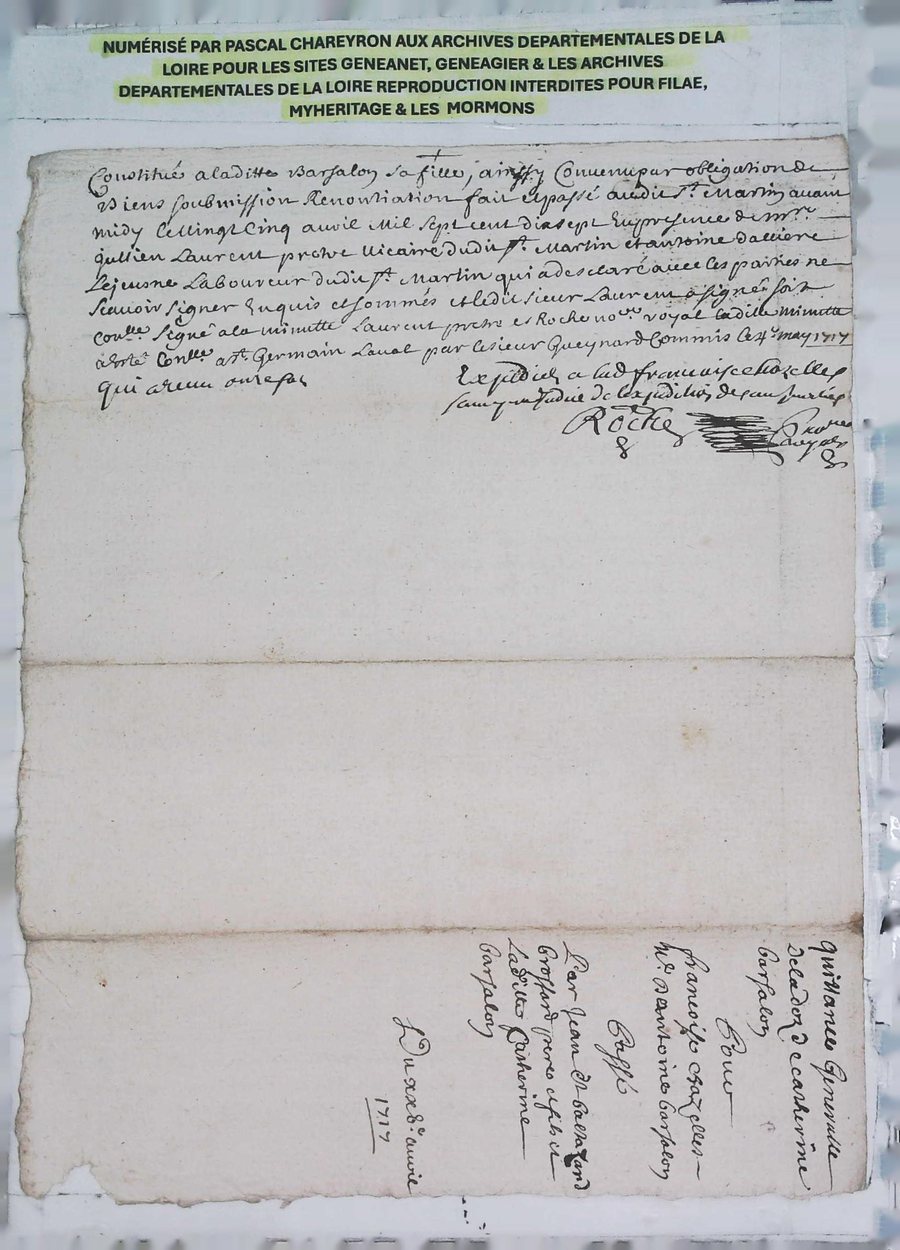 NUMÉRISÉ PAR PASCAL CHAREYRON AUX ARCHIVES DEPARTEMENTALES DE LA
LOIRE POUR LES SITES GENEANET, GENEAGIER & LES ARCHIVES
DEPARTEMENTALES DE LA LOIRE REPRODUCTION INTERDITES POUR FILAE,
MYHERITAGE & LES MORMONS
Constitué a laditte Barsalon sa fille, ainssy Convenu par obligation de
Biens soubmission Renontiation fait et passé audit St. Martin avant
midy Le vingt Cinq avril Mil sept cent dixsept En presence de mre
jullien Laurent prebtre Vicaire dudit St. Martin et antoine dalliere
Lejeusne Laboureur dudit St. Martin qui a desclaré avec les parties ne
scavoir signer Enquis et sommés et ledit sieur Laurent a signé soit
conllé signé a la minutte Laurent prebtre et Roche nore royal ladille minutte
a esté conllé a St. Germain Laval par le sieur Gueynard Commis le 4e may 1717
qui a receu
Expedié a lad francoise chazelles
sans prejudice de l'expedition des autres parties
Roche
quittance Generalle
de la dot de catherine
barsalon
Pour
francoise chazelles
ve. d'antoine barsalon
Passé
Par Jean et baltazard
brossard pere et fils et
Laditte Catherine
barsalon
Du xxve avril
1717